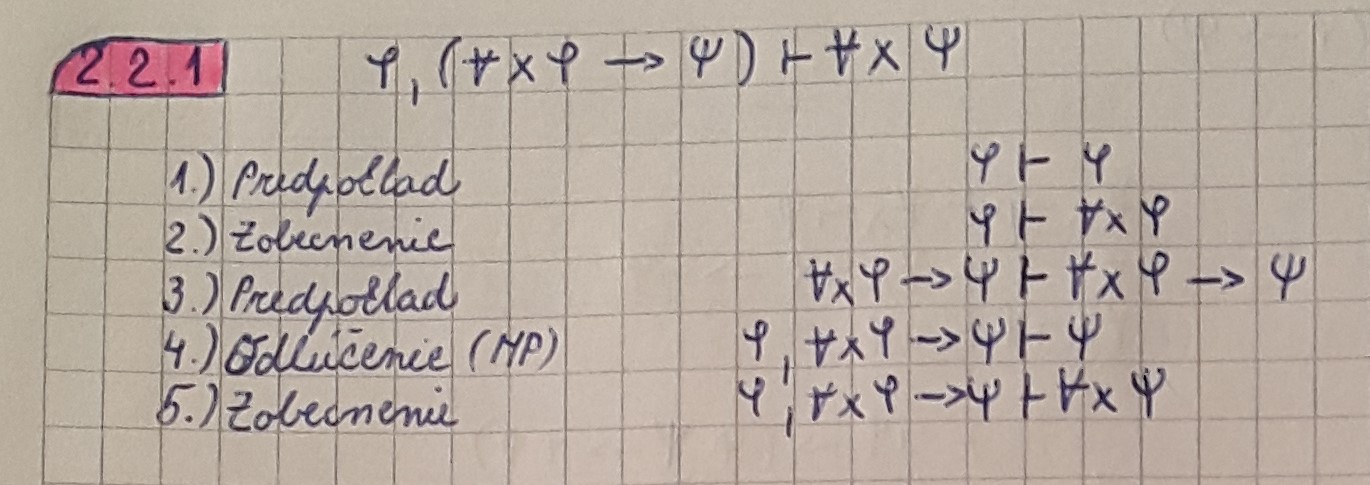 2.2.1 φ, (∀xφ → ψ) ⊢ ∀x ψ
1.) Predpoklad φ ⊢ φ
2.) Zobecnenie φ ⊢ ∀xφ
3.) Predpoklad ∀xφ → ψ ⊢ ∀xφ → ψ
4.) Odlúčenie (MP) φ, ∀xφ → ψ ⊢ ψ
5.) Zobecnenie φ, ∀xφ → ψ ⊢ ∀x ψ